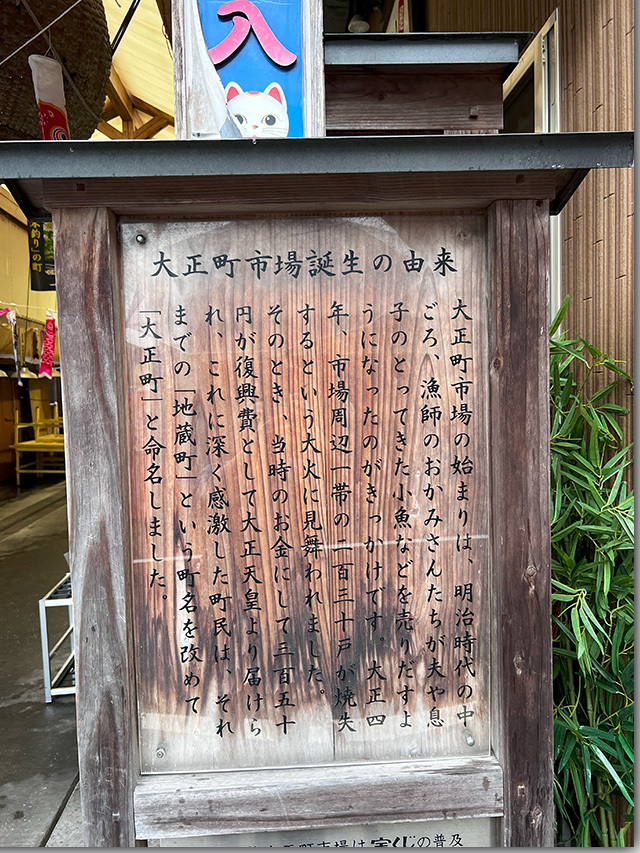 入
大正町市場誕生の由来
大正町市場の始まりは、明治時代の中
ごろ、漁師のおかみさんたちが夫や息
子のとってきた小魚などを売りだすよ
うになったのがきっかけです。大正四
年、市場周辺一帯の二百三十戸が焼失
するという大火に見舞われました。
そのとき、当時のお金にして三百五十
円が復興費として大正天皇より届けら
れ、これに深く感激した町民は、それ
までの「地蔵町」という町名を改めて
「大正町」と命名しました。
釣り」の町
大正町市場は宝くじの普及